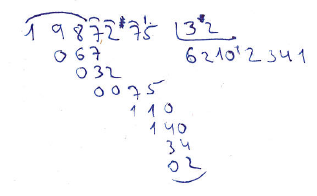 1 9 8 7 2 " 7 5 3 " 2
0 6 7 6 2 1 0 ' 2 3 4 1
0 3 2
0 0 7 5
1 1 0
1 4 0
3 4
0 2